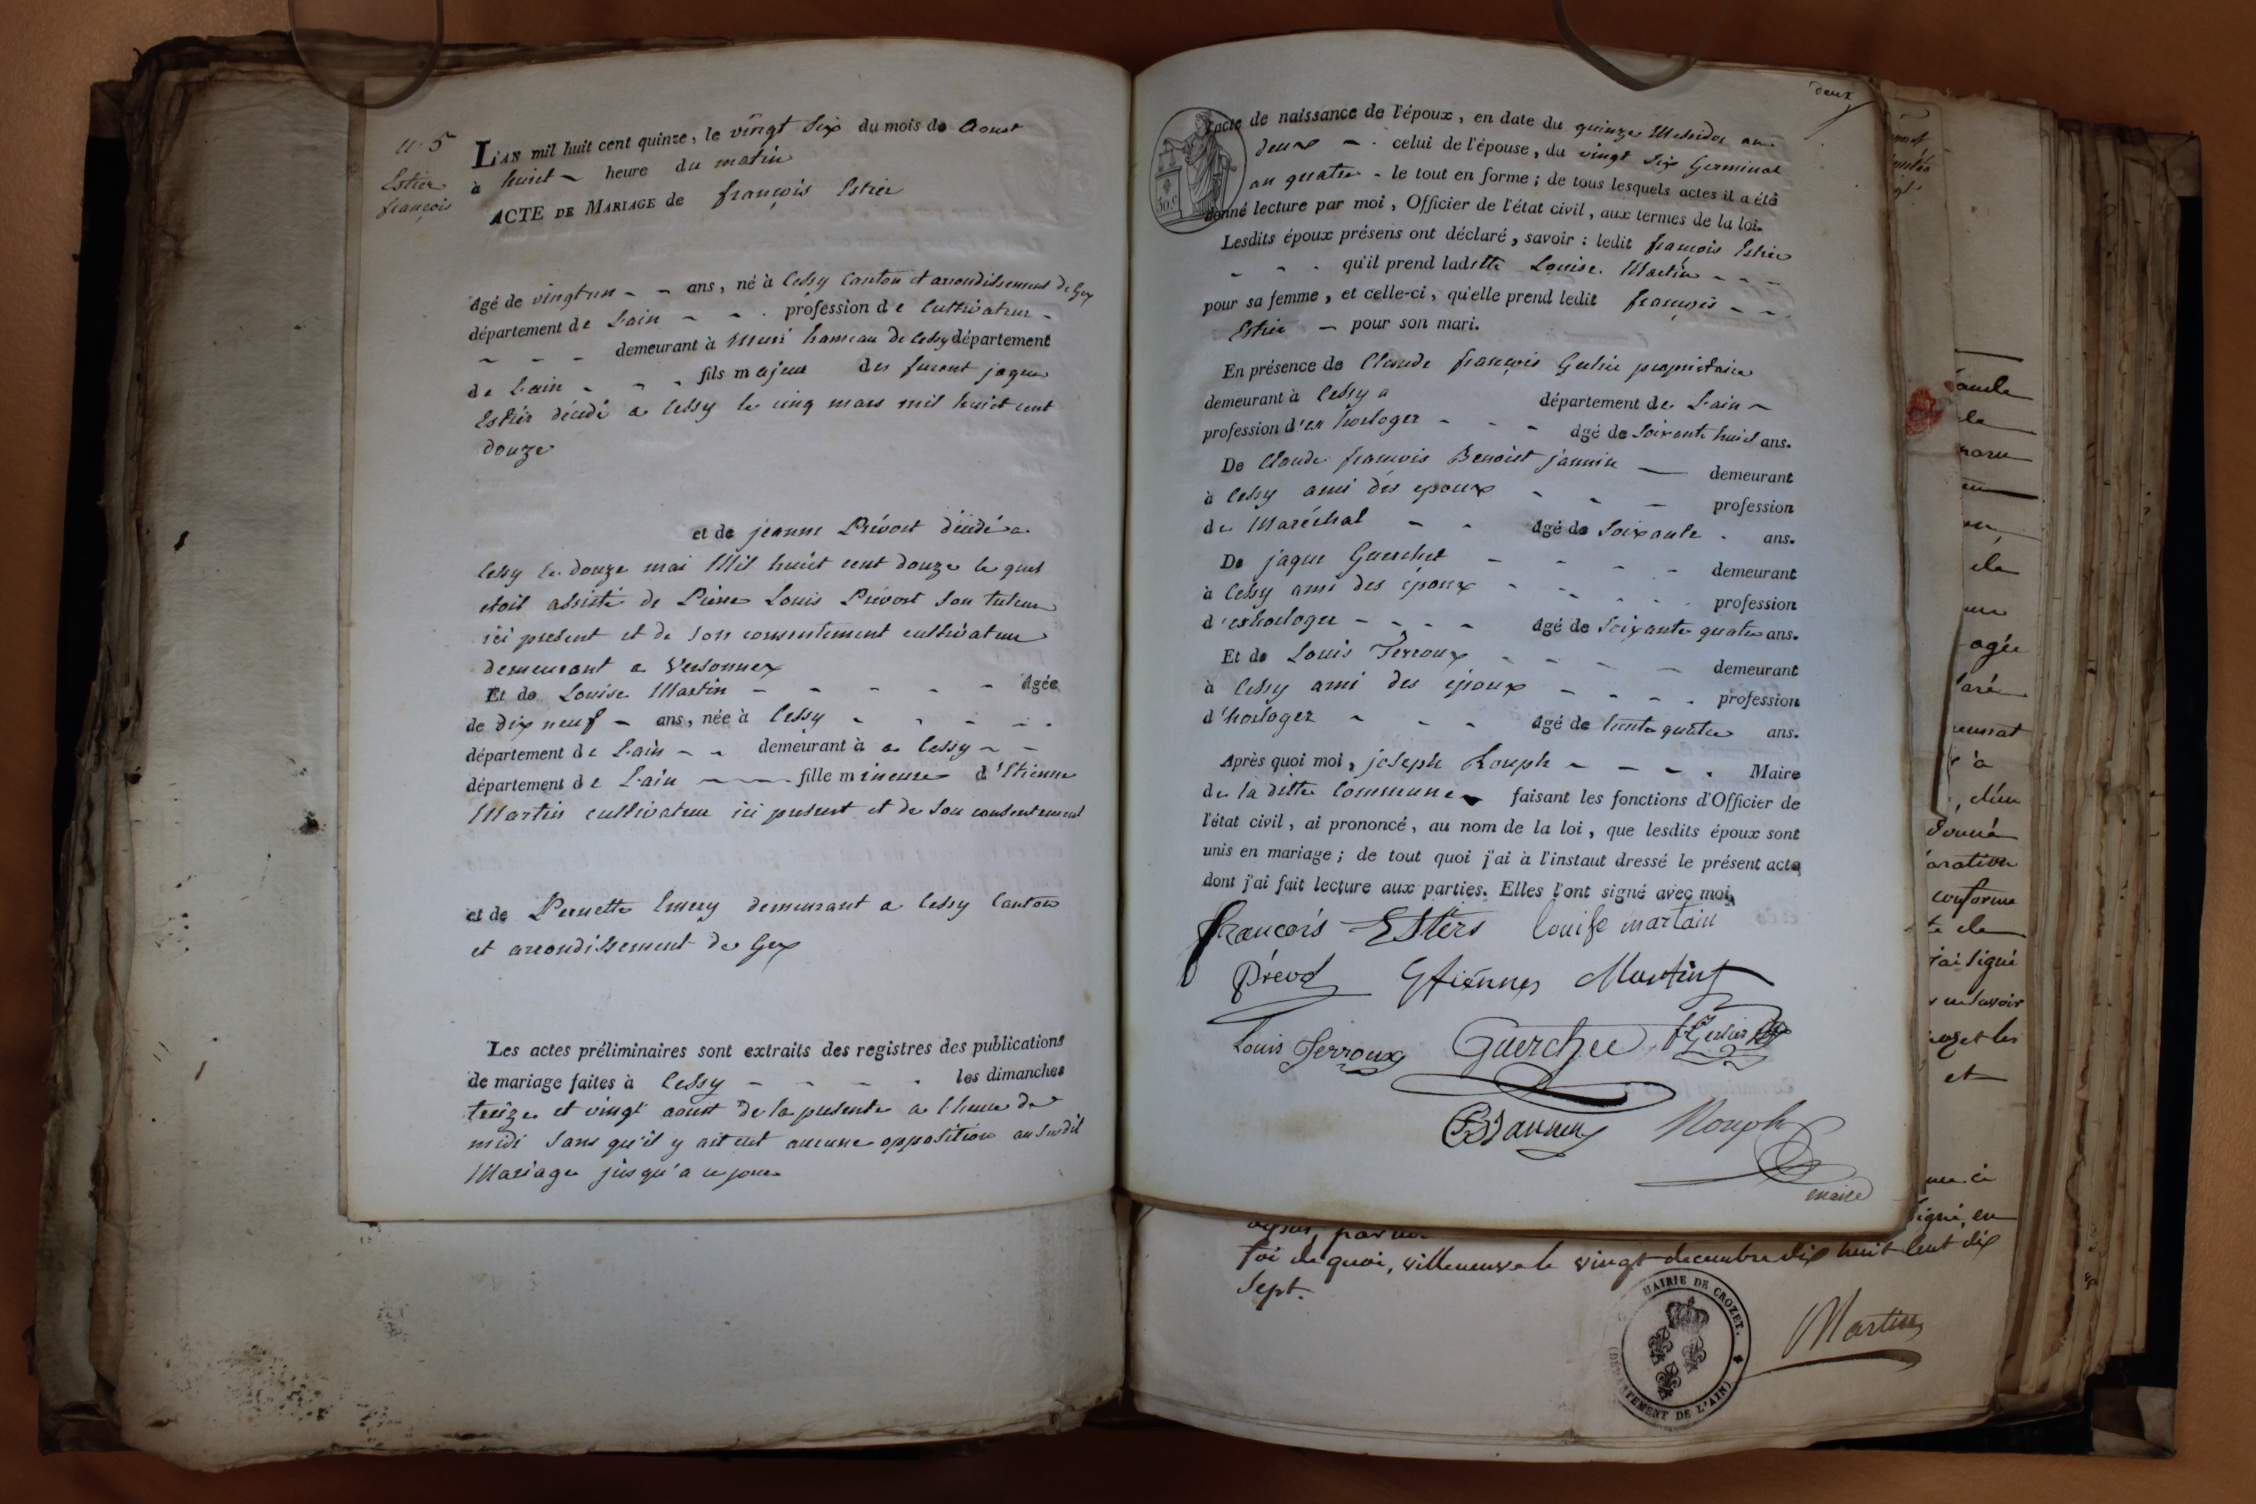 n. 5
Estier
françois
L'AN mil huit cent quinze, le vingt six du mois de Aoust
à huict heure du matin
ACTE DE MARIAGE de françois Estier
âgé de vingt un ans, né à Cessy Canton et arrondissement de Gex
département de L'ain profession de Cultivateur
demeurant à Muri hameau de Cessy département
de L'ain fils majeur des furent jaque
Estier décédé a Cessy le cinq mars mil huict cent
douze
et de jeanne Prévost décédé a
Cessy le douze mai Mil huict cent douze le quel
etoit assisté de Pierre Louis Prévost son tuteur
ici present et de son consentement cultivateur
demeurant a Versonnex
Et de Louise Martin âgée
de dix neuf ans, née à Cessy
département de L'ain demeurant à a Cessy
département de L'ain fille mineure d'Etienne
Martin cultivateur ici present et de son consentement
et de Pernette Emery demeurant a Cessy Canton
et arrondissement de Gex
Les actes préliminaires sont extraits des registres des publications
de mariage faites à Cessy les dimanches
treize et vingt aoust de la presente a l'heure de
midi sans qu'il y ait eut aucune opposition au susdit
Mariage jusqu'a ce jour
deux
l'acte de naissance de l'époux, en date du quinze Messidor an
deux celui de l'épouse, du vingt six Germinal
an quatre - le tout en forme ; de tous lesquels actes il a été
donné lecture par moi, Officier de l'état civil, aux termes de la loi.
Lesdits époux présens ont déclaré, savoir : ledit françois Estier
qu'il prend laditte Louise Martin
pour sa femme, et celle-ci, qu'elle prend ledit françois
Estier pour son mari.
En présence de Claude françois Gerlier propriétaire
demeurant à Cessy a département de L'ain
profession d'ex horloger âgé de soixante huict ans.
De Claude francois Benoist jannin demeurant
à Cessy ami des epoux profession
de Maréchal âgé de soixante ans.
De jaque Guerchet demeurant
à Cessy ami des époux profession
d'exhorloger âgé de soixante quatre ans.
Et de Louis Terroux demeurant
à Cessy ami des époux profession
d'horloger âgé de trente quatre ans.
Après quoi moi, joseph Rouph Maire
de la ditte Commune faisant les fonctions d'Officier de
l'état civil, ai prononcé, au nom de la loi, que lesdits époux sont
unis en mariage ; de tout quoi j'ai à l'instant dressé le présent acte
dont j'ai fait lecture aux parties. Elles l'ont signé avec moi,
francois Estiers Louise martain
Prévost Etiennes Martin
Louis Terroux Guerchet
Jannin Rouph
maire
foi de quoi, villeneuve le vingt decembre dix huit cent dix
sept.
MAIRIE DE CROZET.
(DEPARTEMENT DE L'AIN)
Martin